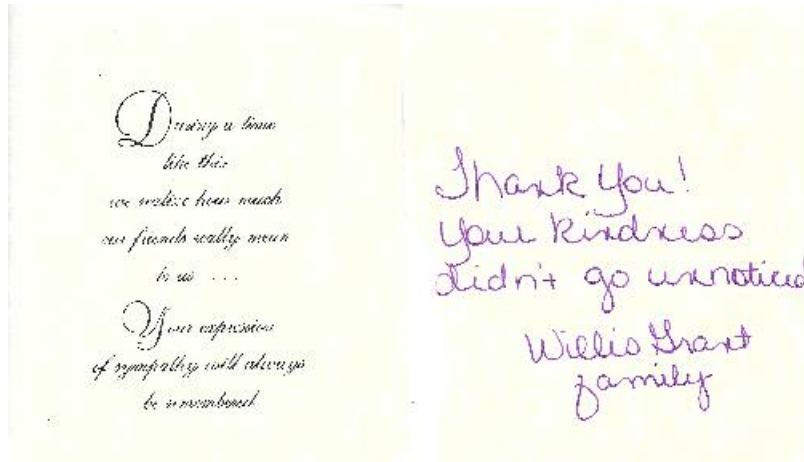 During a time
like this
we realize how much
our friends really mean
to us ...
Your expression
of sympathy will always
be remembered
Thank You!
Your kindness
didn't go unnoticed
Willis Grant
family